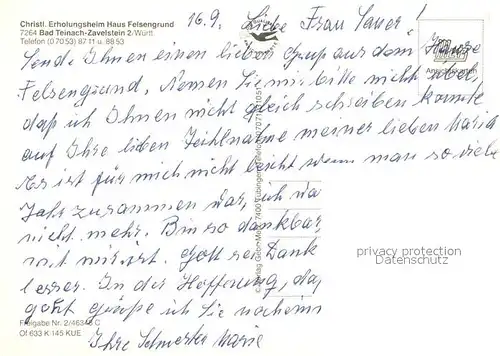 Christl. Erholungsheim Haus Felsengrund
7264 Bad Teinach-Zavelstein 2/Württ.
Telefon (0 70 53) 87 11 u. 88 53
16.9. Liebe Frau Sauer!
Sende Ihnen einen lieben Gruß aus dem Hause
Felsengrund. Nemen Sie mir bitte nicht übel,
daß ich Ihnen nicht gleich schreiben konnte
auf Ihre lieben Teihlname meiner lieben Maria
Es ist für mich nicht leicht wenn man so viele
Jahr zusammen war,
nicht mehr. Bin so dankbar,
mit mir ist. Gott sei Dank
besser. In der Hoffnung, das
geht grüße ich Sie nocheins
Ihre Schwester Marie
privacy protection
Datenschutz
Freigabe Nr. 2/46348 C
Of 633 K 145 KUE